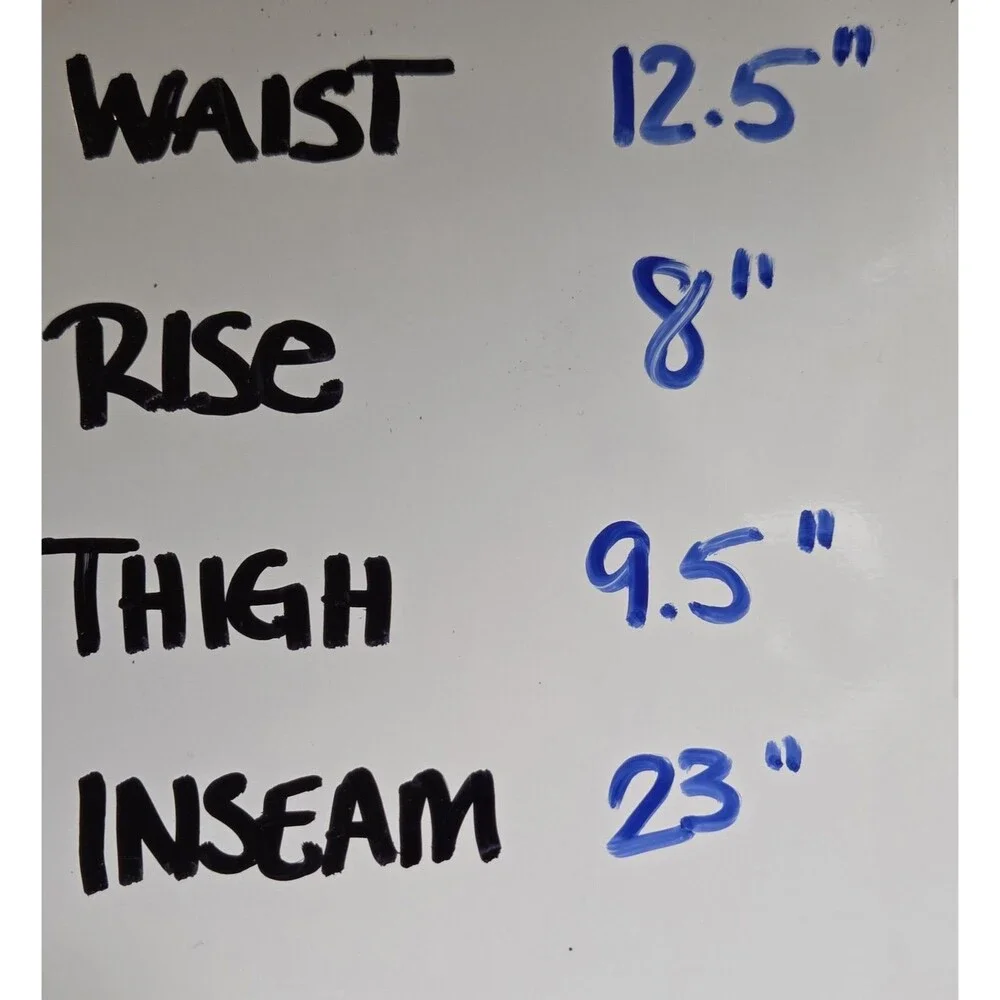 WAIST 12.5"
RISe 8"
THIGH 9.5"
INSEAM 23"